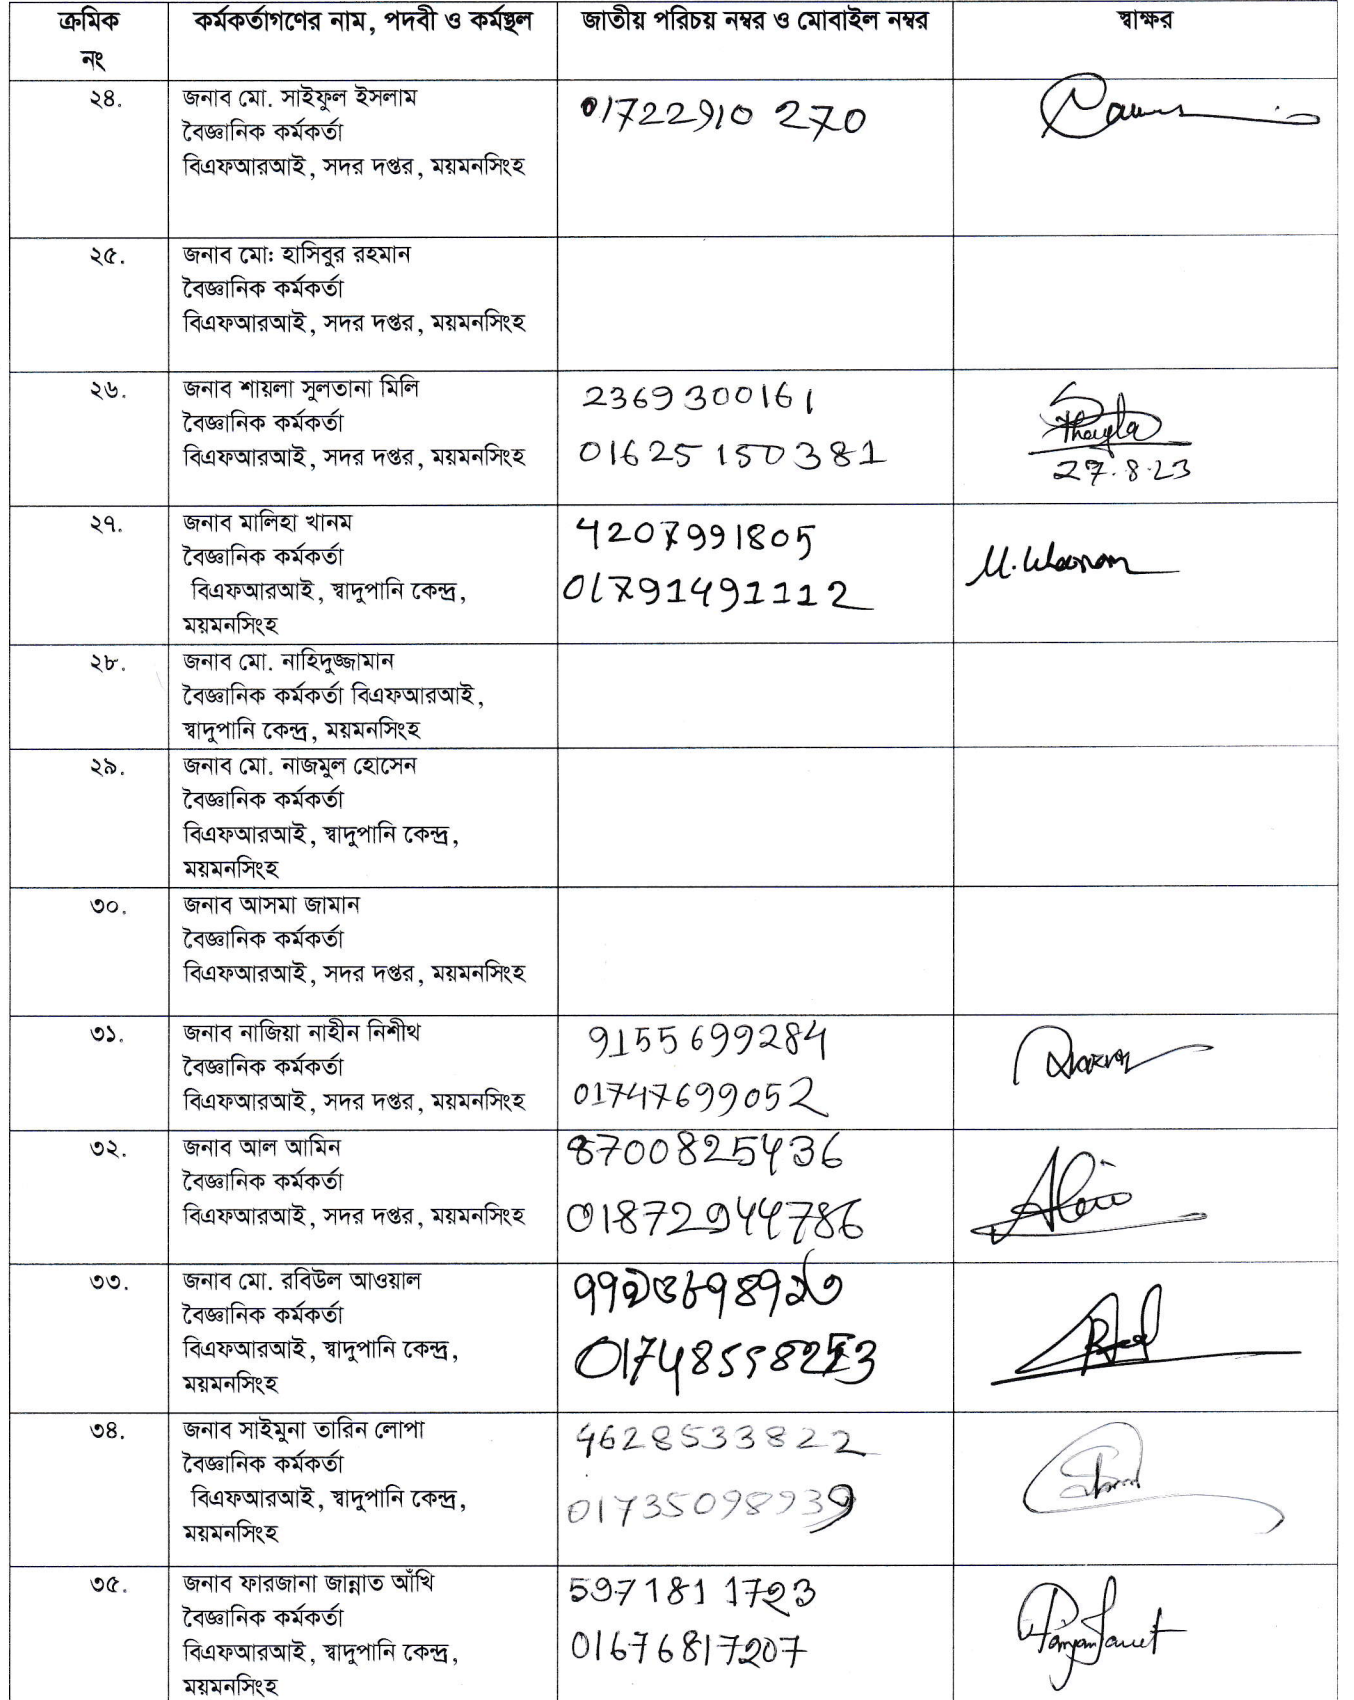 ক্রমিক নং কর্মকর্তাগণের নাম, পদবী ও কর্মস্থল জাতীয় পরিচয় নম্বর ও মোবাইল নম্বর স্বাক্ষর
২৪. জনাব মো. সাইফুল ইসলাম
বৈজ্ঞানিক কর্মকর্তা
বিএফআরআই, সদর দপ্তর, ময়মনসিংহ
01722910 270
২৫. জনাব মো: হাসিবুর রহমান
বৈজ্ঞানিক কর্মকর্তা
বিএফআরআই, সদর দপ্তর, ময়মনসিংহ
২৬. জনাব শায়লা সুলতানা মিলি
বৈজ্ঞানিক কর্মকর্তা
বিএফআরআই, সদর দপ্তর, ময়মনসিংহ
2369300161
01625150381
27.8.23
২৭. জনাব মালিহা খানম
বৈজ্ঞানিক কর্মকর্তা
বিএফআরআই, স্বাদুপানি কেন্দ্র,
ময়মনসিংহ
4207991805
01791491112
M. Khanam
২৮. জনাব মো. নাহিদুজ্জামান
বৈজ্ঞানিক কর্মকর্তা বিএফআরআই,
স্বাদুপানি কেন্দ্র, ময়মনসিংহ
২৯. জনাব মো. নাজমুল হোসেন
বৈজ্ঞানিক কর্মকর্তা
বিএফআরআই, স্বাদুপানি কেন্দ্র,
ময়মনসিংহ
৩০. জনাব আসমা জামান
বৈজ্ঞানিক কর্মকর্তা
বিএফআরআই, সদর দপ্তর, ময়মনসিংহ
৩১. জনাব নাজিয়া নাহীন নিশীথ
বৈজ্ঞানিক কর্মকর্তা
বিএফআরআই, সদর দপ্তর, ময়মনসিংহ
9155699284
01747699052
৩২. জনাব আল আমিন
বৈজ্ঞানিক কর্মকর্তা
বিএফআরআই, সদর দপ্তর, ময়মনসিংহ
8700825436
01872944786
৩৩. জনাব মো. রবিউল আওয়াল
বৈজ্ঞানিক কর্মকর্তা
বিএফআরআই, স্বাদুপানি কেন্দ্র,
ময়মনসিংহ
৩৪. জনাব সাইমুনা তারিন লোপা
বৈজ্ঞানিক কর্মকর্তা
বিএফআরআই, স্বাদুপানি কেন্দ্র,
ময়মনসিংহ
4628533822
01735098939
৩৫. জনাব ফারজানা জান্নাত আঁখি
বৈজ্ঞানিক কর্মকর্তা
বিএফআরআই, স্বাদুপানি কেন্দ্র,
ময়মনসিংহ
5971811723
01676817207